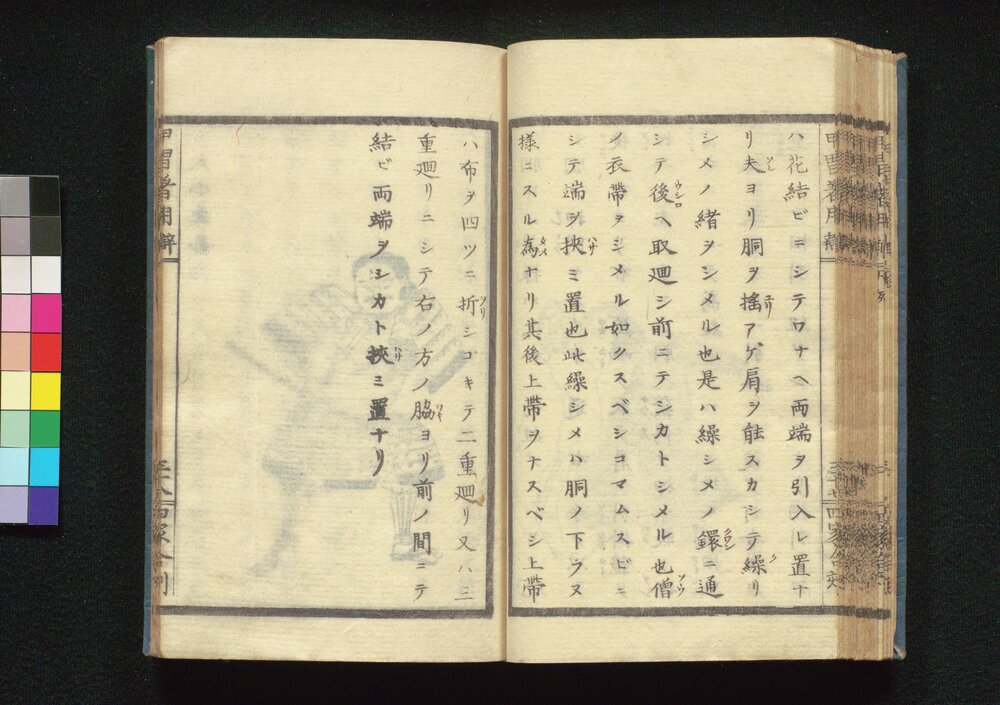 ハ花結ビニシテワナヘ両端ヲ引入レ置ナ
リ夫ヨリ胴ヲ搖アゲ肩ヲ能スカシテ繰リ
シメノ緒ヲシメル也是ハ繰シメノ鐶ニ通
シテ後ヘ取廻シ前ニテシカトシメル也僧
ノ衣帶ヲシメル如クスベシコマムスビニ
シテ端ヲ挾ミ置也此繰シメハ胴ノ下ラヌ
様ニスル為ナリ其後上帶ヲナスベシ上帶
ハ布ヲ四ツニ折シゴキテ二重廻リ又ハ三
重廻リニシテ右ノ方ノ脇ヨリ前ノ間ニテ
結ビ両端ヲシカト挾ミ置ナリ
甲冑着用辨